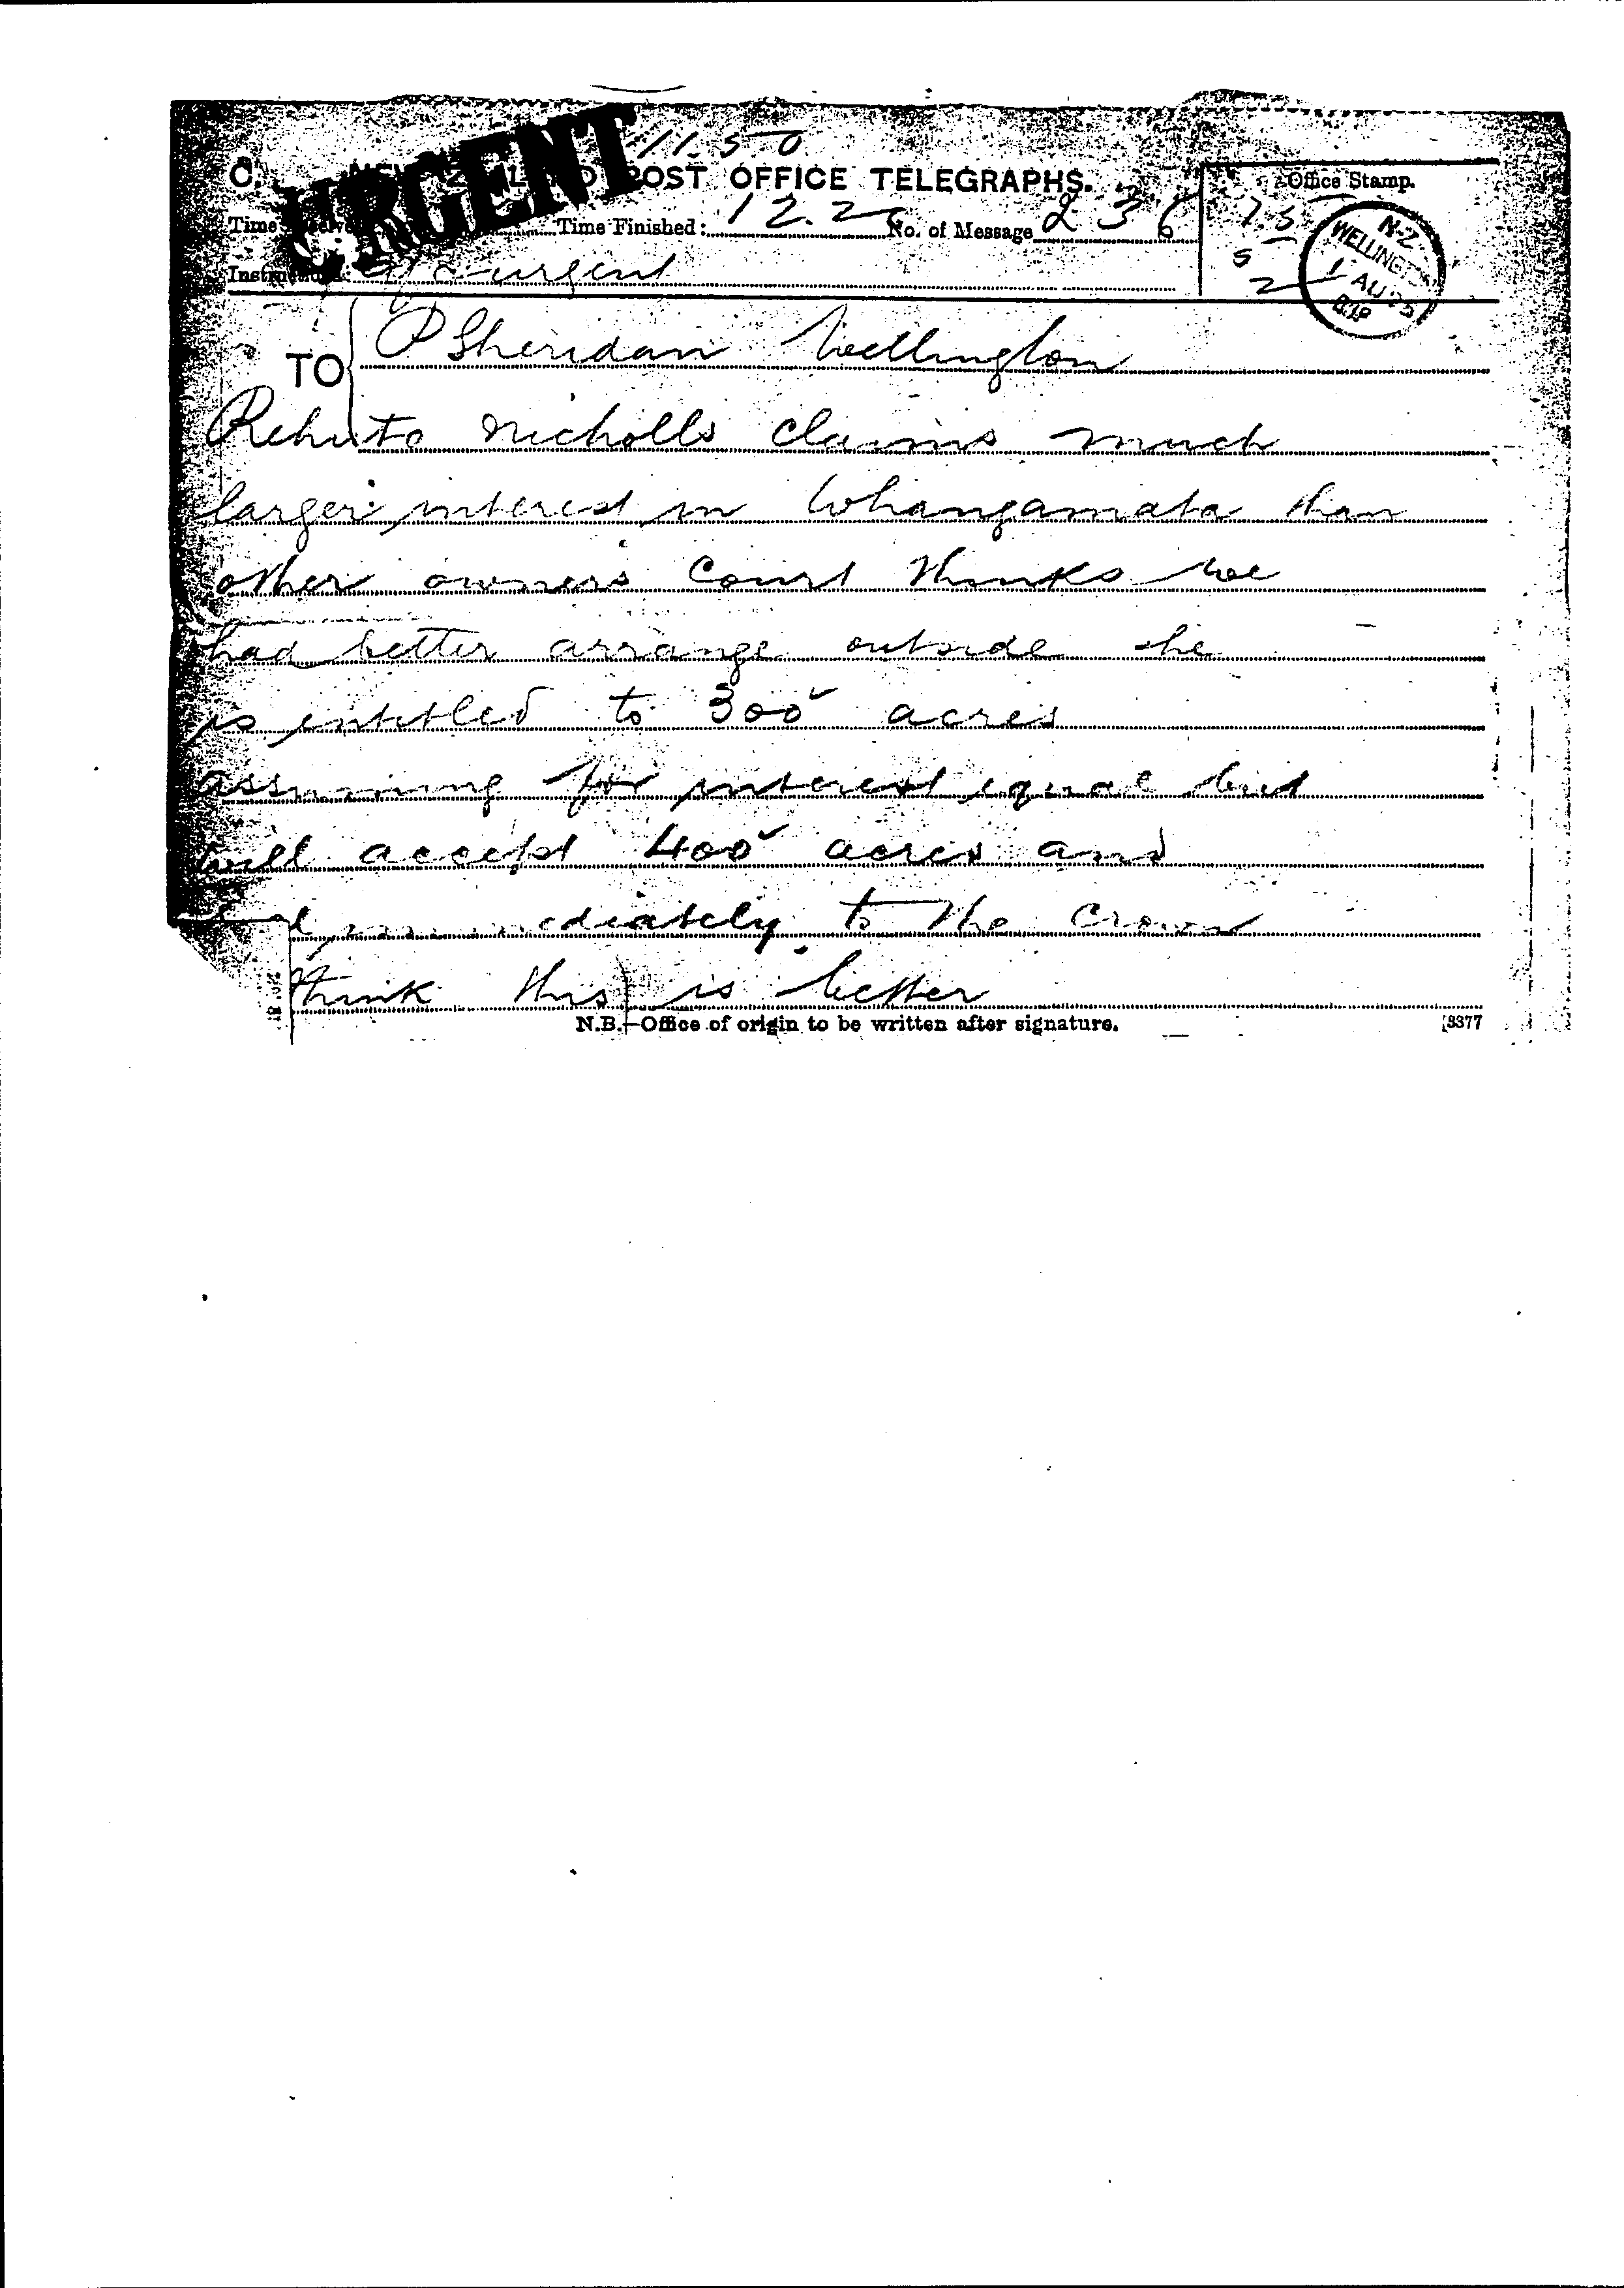 11.50
URGENT
POST OFFICE TELEGRAPHS.
Office Stamp.
Time Finished: 12.2 No. of Message 236
N.Z. WELLINGTON 1 AU 95
urgent
TO P Sheridan Wellington
nicholls claims much
larger interest in Whangamata than
other owners Court thinks we
had better arrange outside she
is entitled to 300 acres
assuming for interest equal but
will accept 400 acres and
to the Crown
think this is better
N.B.—Office of origin to be written after signature.
[8377